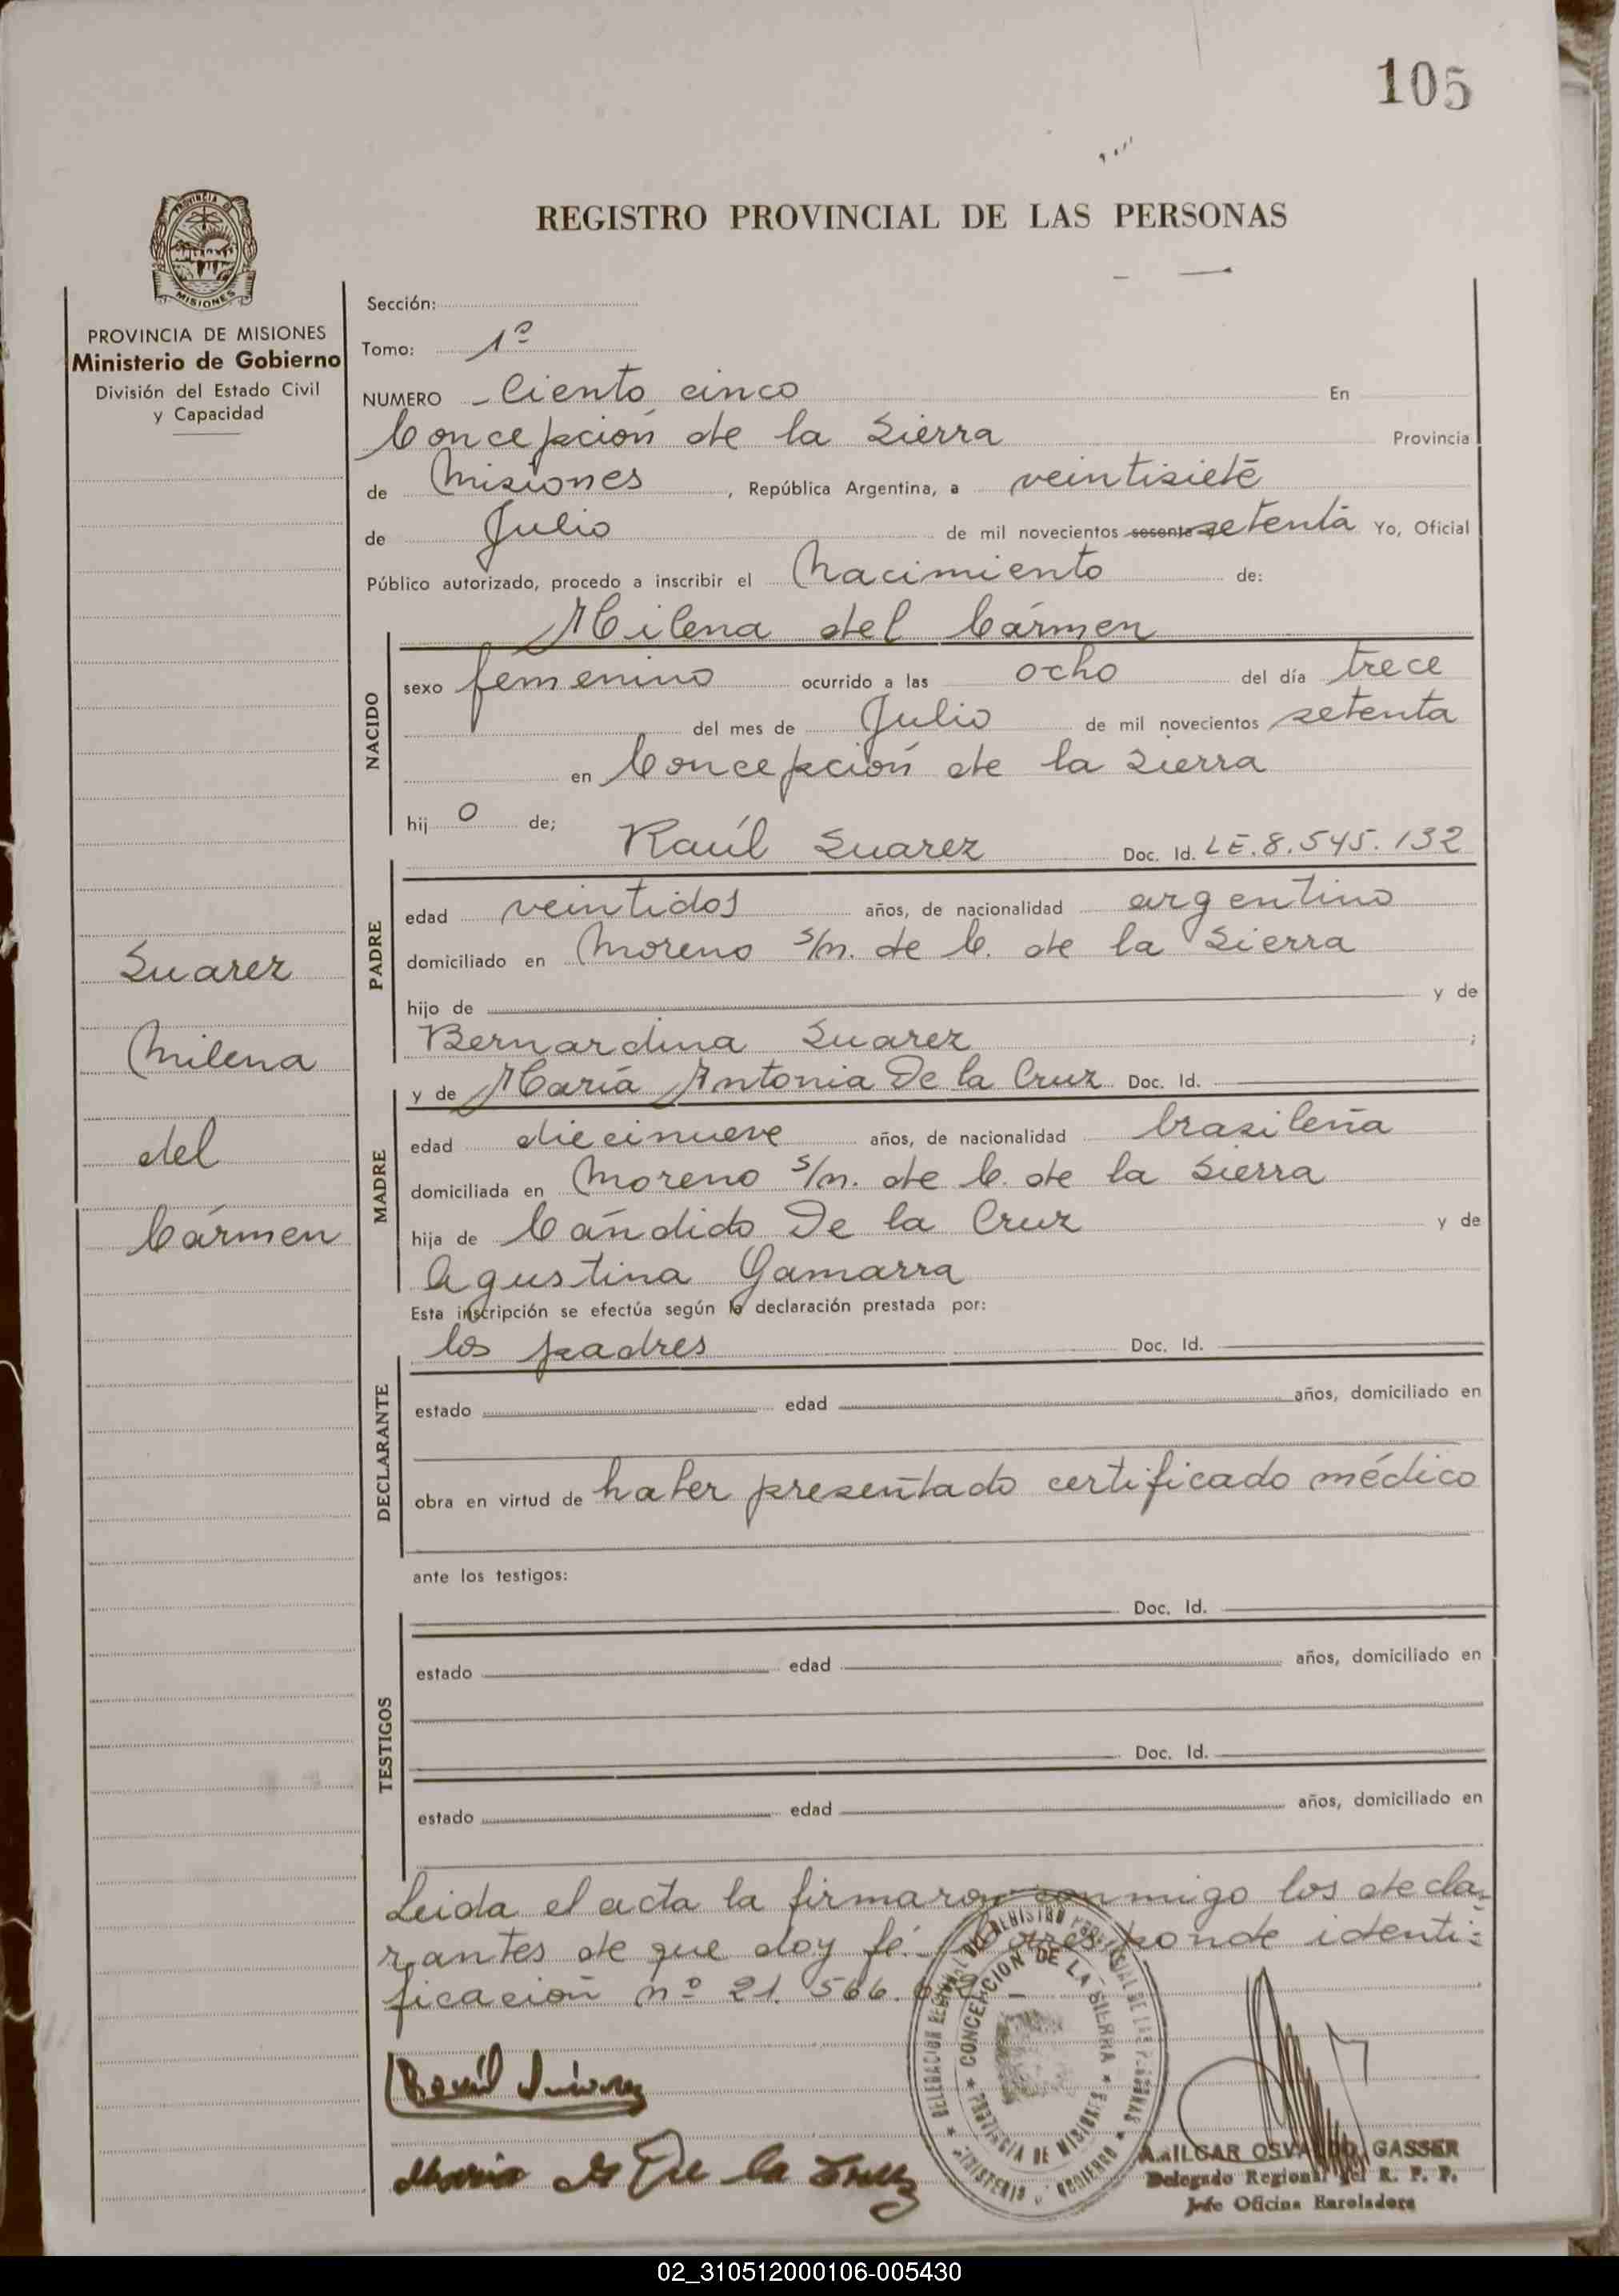 105
REGISTRO PROVINCIAL DE LAS PERSONAS
PROVINCIA DE
MISIONES
PROVINCIA DE MISIONES
Ministerio de Gobierno
División del Estado Civil
y Capacidad
Suarez
Milena
del
Cármen
Sección:
Tomo: 1º
NUMERO - Ciento cinco En
Concepción de la Sierra Provincia
de Misiones, República Argentina, a veintisiete
de Julio de mil novecientos sesenta setenta Yo, Oficial
Público autorizado, procedo a inscribir el Nacimiento de:
Milena del Cármen
NACIDO
sexo femenino ocurrido a las ocho del día trece
del mes de Julio de mil novecientos setenta
en Concepción de la Sierra
hij o de;
Raúl Suarez Doc. Id. LE.8.545.132
PADRE
edad veintidos años, de nacionalidad argentino
domiciliado en Moreno s/n. de C. de la Sierra
hijo de y de
Bernardina Suarez ;
y de María Antonia De la Cruz Doc. Id.
MADRE
edad diecinueve años, de nacionalidad brasileña
domiciliada en Moreno s/n. de C. de la Sierra
hija de Cándido De la Cruz y de
Agustina Gamarra
Esta inscripción se efectúa según la declaración prestada por:
los padres Doc. Id.
DECLARANTE
estado edad años, domiciliado en
obra en virtud de haber presentado certificado médico
ante los testigos:
Doc. Id.
TESTIGOS
estado edad años, domiciliado en
Doc. Id.
estado edad años, domiciliado en
Leida el acta la firmaron conmigo los decla-
rantes de que doy fé.- Corresponde identi-
ficación nº 21.566.
DELEGACION REGIONAL DEL REGISTRO PROVINCIAL DE LAS PERSONAS
CONCEPCION DE LA SIERRA
PROVINCIA DE MISIONES
MINISTERIO DE GOBIERNO
Raúl Suarez
Maria A De la Cruz
AMILCAR OSVALDO GASSER
Delegado Regional del R. P. P.
Jefe Oficina Enroladora
02_310512000106-005430